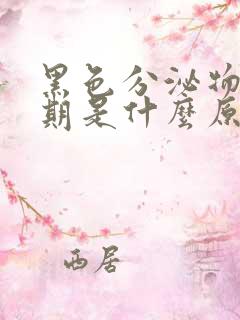 黑色分泌物
期是什麼原
西居